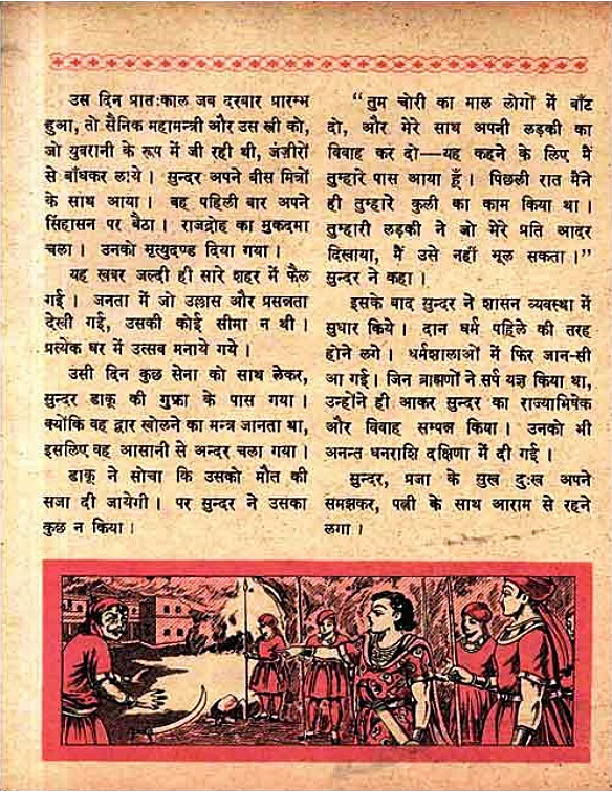 उस दिन प्रातःकाल जब दरबार प्रारम्भ
हुआ, तो सैनिक महामन्त्री और उस स्त्री को,
जो युवरानी के रूप में जी रही थी, जंज़ीरों
से बाँधकर लाये। सुन्दर अपने बीस मित्रों
के साथ आया। वह पहिली बार अपने
सिंहासन पर बैठा। राजद्रोह का मुकदमा
चला। उनको मृत्युदण्ड दिया गया।
यह खबर जल्दी ही सारे शहर में फैल
गई। जनता में जो उल्लास और प्रसन्नता
देखी गई, उसकी कोई सीमा न थी।
प्रत्येक घर में उत्सव मनाये गये।
उसी दिन कुछ सेना को साथ लेकर,
सुन्दर डाकू की गुफ़ा के पास गया।
क्योंकि वह द्वार खोलने का मन्त्र जानता था,
इसलिए वह आसानी से अन्दर चला गया।
डाकू ने सोचा कि उसको मौत की
सजा दी जायेगी। पर सुन्दर ने उसका
कुछ न किया।
“तुम चोरी का माल लोगों में बाँट
दो, और मेरे साथ अपनी लड़की का
विवाह कर दो—यह कहने के लिए मैं
तुम्हारे पास आया हूँ। पिछली रात मैंने
ही तुम्हारे कुली का काम किया था।
तुम्हारी लड़की ने जो मेरे प्रति आदर
दिखाया, मैं उसे नहीं भूल सकता।”
सुन्दर ने कहा।
इसके बाद सुन्दर ने शासन व्यवस्था में
सुधार किये। दान धर्म पहिले की तरह
होने लगे। धर्मशालाओं में फिर जान-सी
आ गई। जिन ब्राह्मणों ने सर्प यज्ञ किया था,
उन्होंने ही आकर सुन्दर का राज्याभिषेक
और विवाह सम्पन्न किया। उनको भी
अनन्त धनराशि दक्षिणा में दी गई।
सुन्दर, प्रजा के सुख दुःख अपने
समझकर, पत्नी के साथ आराम से रहने
लगा।